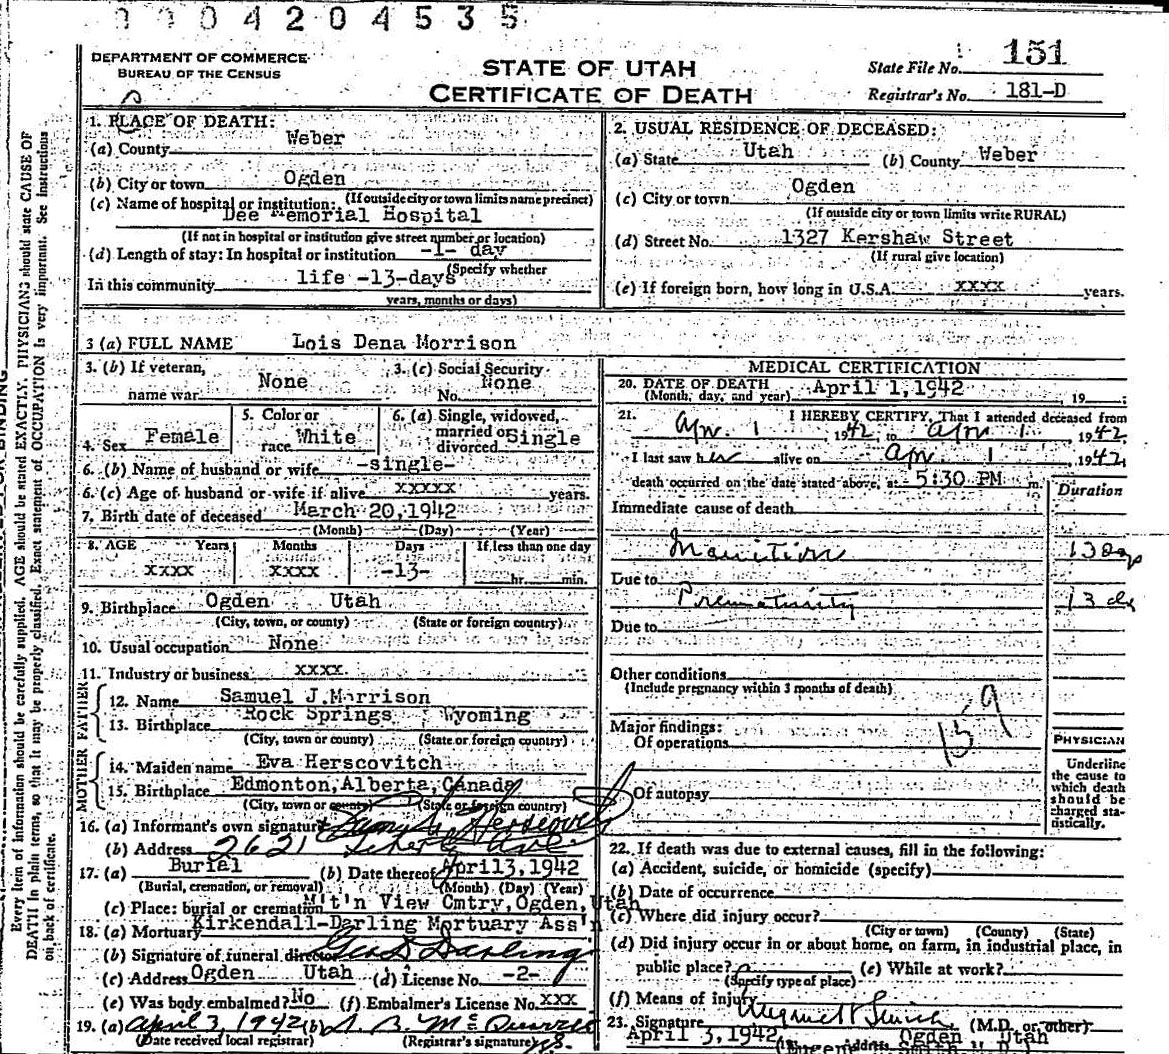 0004204535
DEPARTMENT OF COMMERCE
BUREAU OF THE CENSUS
STATE OF UTAH
CERTIFICATE OF DEATH
State File No. 151
Registrar's No. 181-D
1. PLACE OF DEATH:
(a) County Weber
(b) City or town Ogden
(If outside city or town limits name precinct)
(c) Name of hospital or institution:
Dee Memorial Hospital
(If not in hospital or institution give street number or location)
(d) Length of stay: In hospital or institution -1- day
(Specify whether
In this community life -13-days
years, months or days)
2. USUAL RESIDENCE OF DECEASED:
(a) State Utah (b) County Weber
(c) City or town Ogden
(If outside city or town limits write RURAL)
(d) Street No. 1327 Kershaw Street
(If rural give location)
(e) If foreign born, how long in U.S.A. xxxx years.
3 (a) FULL NAME Lois Dena Morrison
3. (b) If veteran, name war None
3. (c) Social Security No. None
4. Sex Female
5. Color or race White
6. (a) Single, widowed, married or divorced Single
6. (b) Name of husband or wife -single-
6. (c) Age of husband or wife if alive xxxxx years.
7. Birth date of deceased March 20,1942
(Month) (Day) (Year)
8. AGE Years Months Days If less than one day
xxxx xxxx -13- hr. min.
9. Birthplace Ogden Utah
(City, town, or county) (State or foreign country)
10. Usual occupation None
11. Industry or business xxxx
FATHER
12. Name Samuel J.Morrison
13. Birthplace Rock Springs, Wyoming
(City, town or county) (State or foreign country)
MOTHER
14. Maiden name Eva Herscovitch
15. Birthplace Edmonton,Alberta,Canada
(City, town or county) (State or foreign country)
16. (a) Informant's own signature Herscovitz
(b) Address 2621 Ave
17. (a) Burial (b) Date thereof April3,1942
(Burial, cremation, or removal) (Month) (Day) (Year)
(c) Place: burial or cremation M't'n View Cmtry,Ogden,Utah
18. (a) Mortuary Kirkendall-Darling Mortuary Ass'n
(b) Signature of funeral director Geo D Darling
(c) Address Ogden Utah (d) License No. -2-
(e) Was body embalmed? No (f) Embalmer's License No. xxx
19. (a) April 3, 1942 (b)
(Date received local registrar) (Registrar's signature)
MEDICAL CERTIFICATION
20. DATE OF DEATH April 1,1942
(Month, day, and year) 19
21. I HEREBY CERTIFY, That I attended deceased from
Apr. 1 1942, to Apr 1 1942,
I last saw her alive on Apr. 1 1942,
death occurred on the date stated above, at 5:30 PM m.
Duration
Immediate cause of death
Inanition 13 days
Due to
Prematurity 13 da
Due to
Other conditions
(Include pregnancy within 3 months of death)
159
Major findings:
Of operations
Of autopsy
PHYSICIAN
Underline
the cause to
which death
should be
charged sta-
tistically.
22. If death was due to external causes, fill in the following:
(a) Accident, suicide, or homicide (specify)
(b) Date of occurrence
(c) Where did injury occur?
(City or town) (County) (State)
(d) Did injury occur in or about home, on farm, in industrial place, in
public place? (e) While at work?
(Specify type of place)
(f) Means of injury
23. Signature (M.D. or other)
April 3,1942 Address Ogden Utah
(Eugene Smith M.D.)
Every item of information should be carefully supplied. AGE should be stated EXACTLY. PHYSICIANS should state CAUSE OF
DEATH in plain terms, so that it may be properly classified. Exact statement of OCCUPATION is very important. See instructions
on back of certificate.